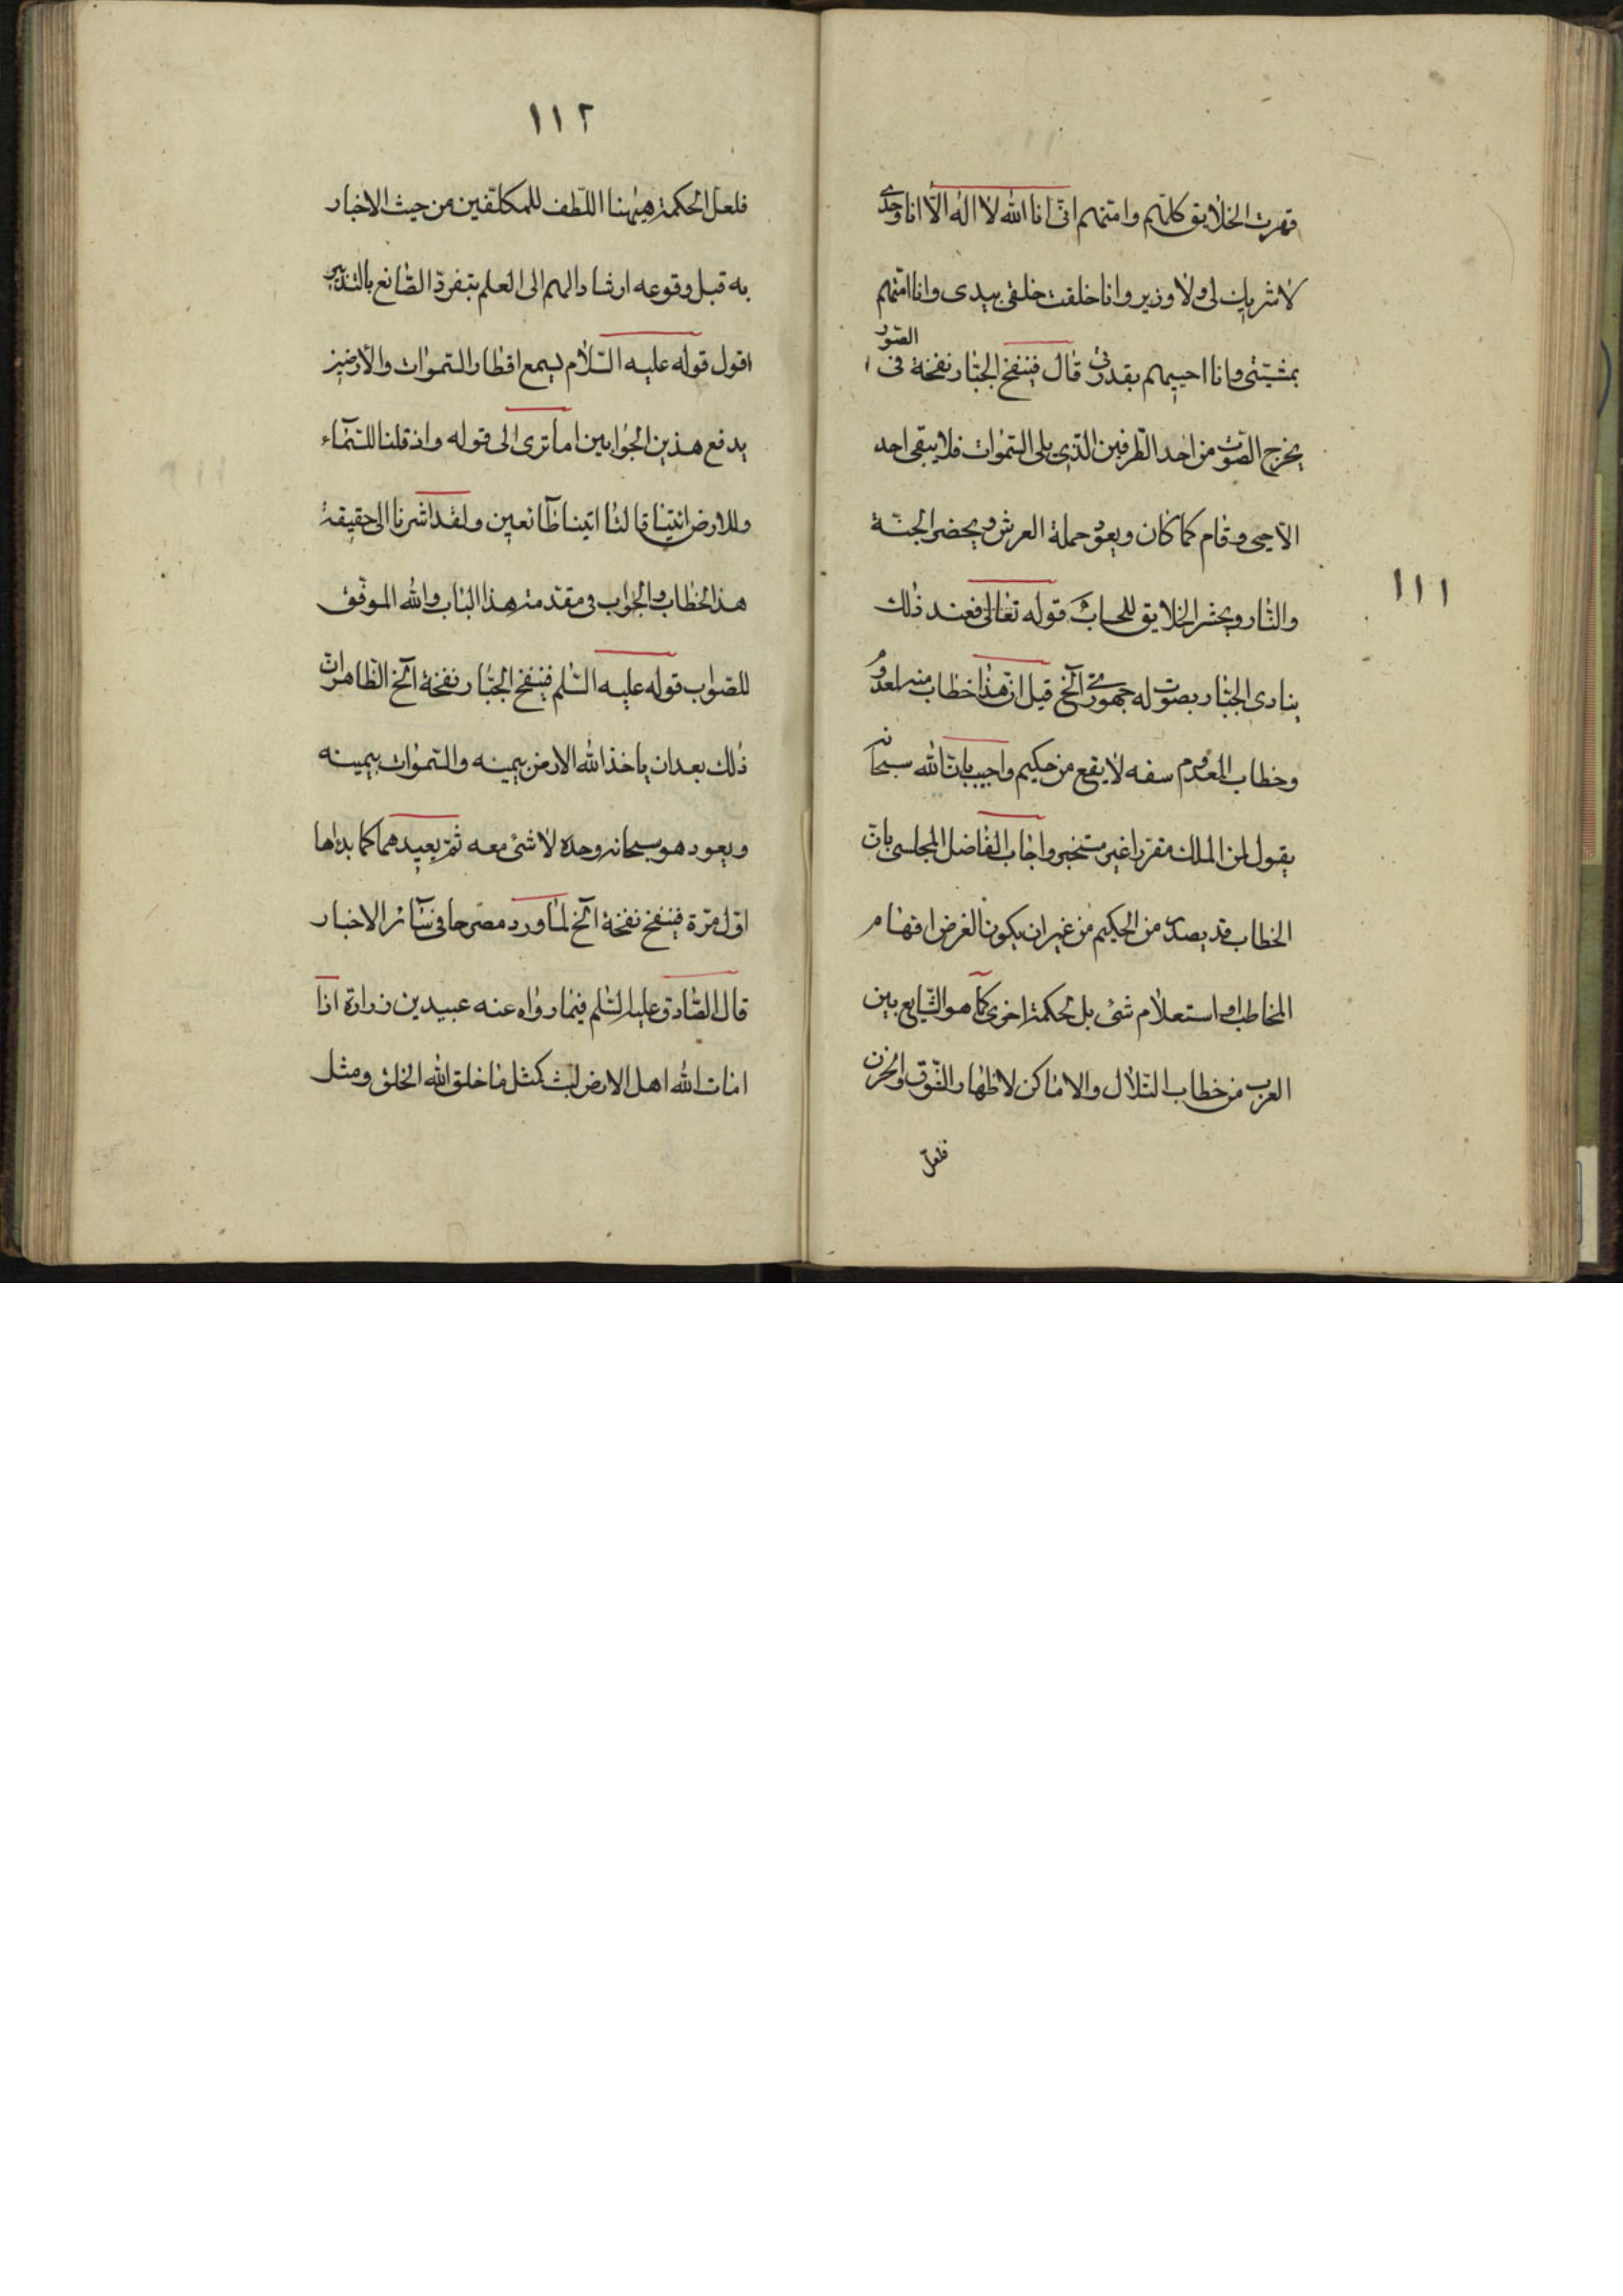 قهرت الخلایق کلهم وامتهم انی انا الله لا اله الا انا وحدی
لا شریك لی ولا وزیر وانا خلقت خلقی بیدی وانا امتهم
بمشیتی وانا احییهم بقدرتی قال فینفخ الجبار نفخة فی الصور
یخرج الصوت من احد الطرفین الذی یلی السموات فلا یبقی احد
الا حیی وقام کما کان ویعود حملة العرش ویحضر الجنة
۱۱۱
والنار ویحشر الخلایق للحساب قوله تعالی فعند ذلك
ینادی الجبار بصوت له جهوری آلخ قیل ان هذا خطاب منه لمعدوم
وخطاب المعدوم سفه لا یقع من حکیم واجیب بان الله سبحانه
یقول لمن الملك مقررا غیر مستخبر واجاب الفاضل المجلسی بان
الخطاب قد یصدر من الحکیم من غیر ان یکون الغرض افهام
المخاطب او استعلام شئ بل لحکمة اخری کما هو الشایع بین
العرب من خطاب التلال والاماکن لاظهار الشوق والحزن
فلعل
۱۱۲
فلعل الحکمة هیهنا اللطف للمکلفین من حیث الاخبار
به قبل وقوعه ارشادا لهم الی العلم بتفرد الصانع بالتدبیر
اقول قوله علیه السلام یسمع اقطار السموات والارضین
یدفع هذین الجوابین اما تری الی قوله واذ قلنا للسماء
وللارض ائتیا قالتا اتینا طائعین ولقد اشرنا الی حقیقة
هذا الخطاب والجواب فی مقدمة هذا الباب والله الموفق
للصواب قوله علیه السلم فینفخ الجبار نفخة آلخ الظاهر ان
ذلك بعد ان یاخذ الله الارض بیمینه والسموات بیمینه
ویعود هو سبحانه وحده لا شئ معه ثم یعیدهما کما بداها
اول مرة فینفخ نفخة آلخ لما ورد مصرحا فی سائر الاخبار
قال الصادق علیه السلم فیما رواه عنه عبید بن زرارة اذا
امات الله اهل الارض لبث کمثل ما خلق الله الخلق ومثل